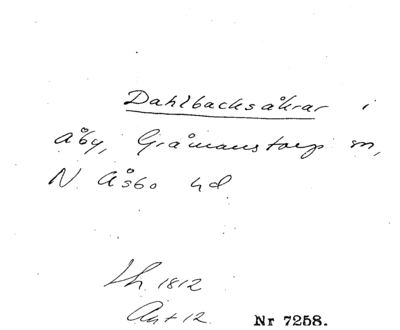 Dahlbacksåkrar i
Åby, Gråmanstorp sn,
N Åsbo hd
Lh. 1812
Akt 12.
Nr 7258.